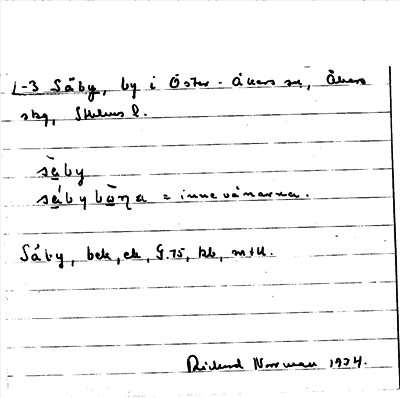 1-3 Säby, by i Öster-Åkers sn, Åkers
skg, Sthlms l.
sä̀by
säbybòηa = innevånarna.
Säby, bek, ek, G.75, kb, m+u.
Rickard Norrman 1934.